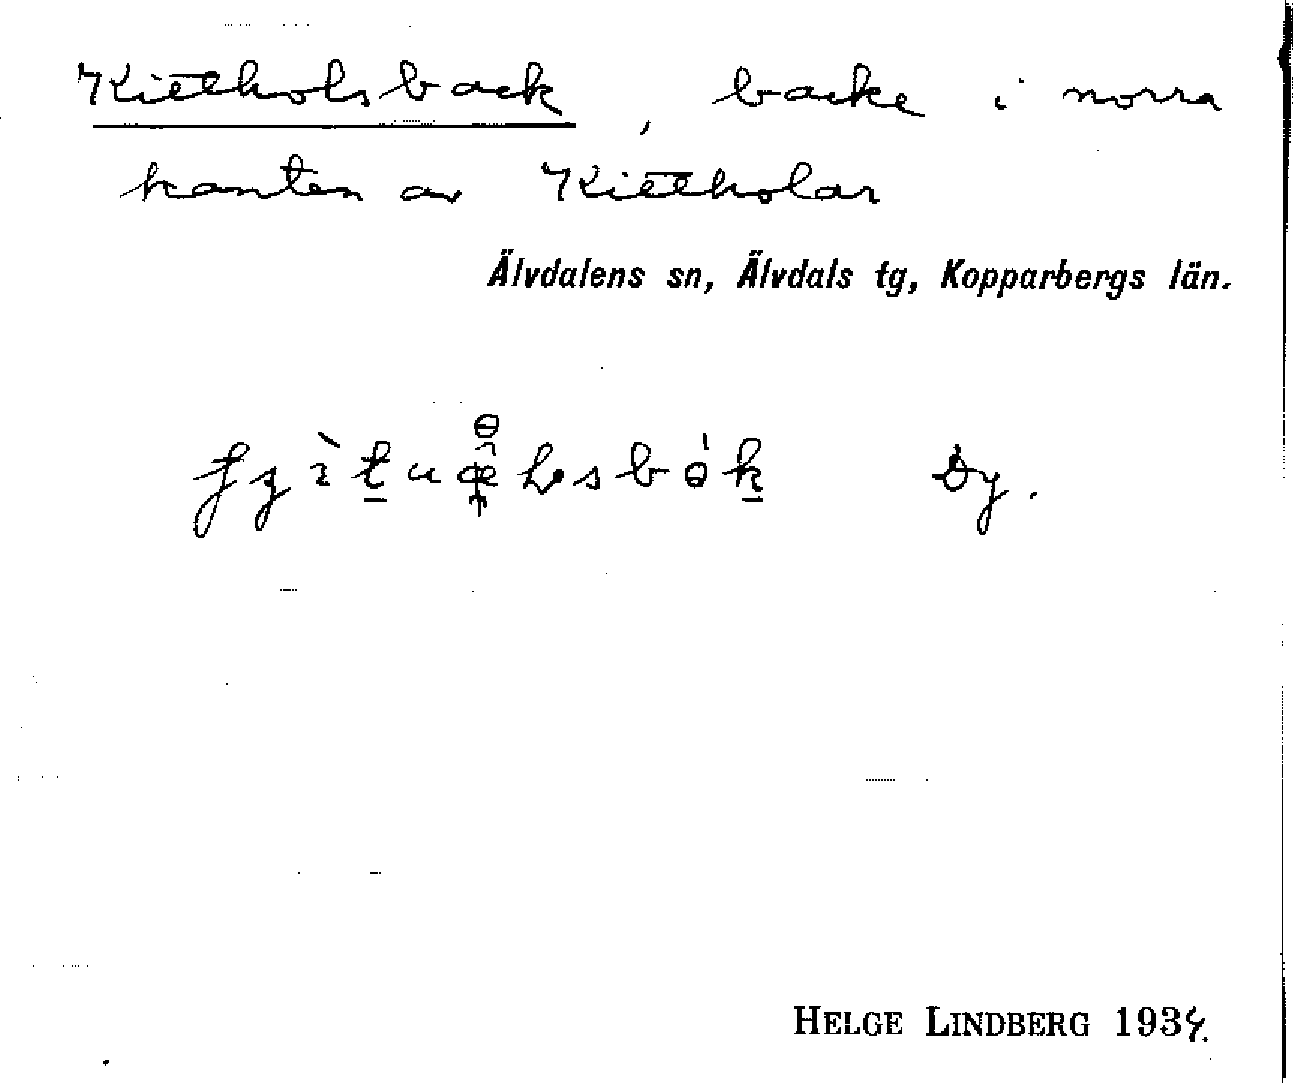 Kittholsback, backe i norra
kanten av Kittholar
Älvdalens sn, Älvdals tg, Kopparbergs län.
Dy.
HELGE LINDBERG 1934.